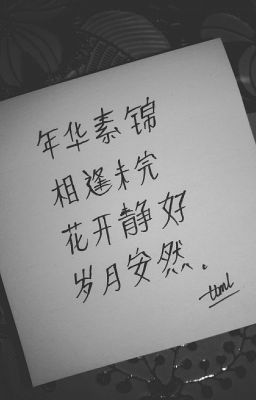 年华素锦
相逢未完
花开静好
岁月安然。
ttml